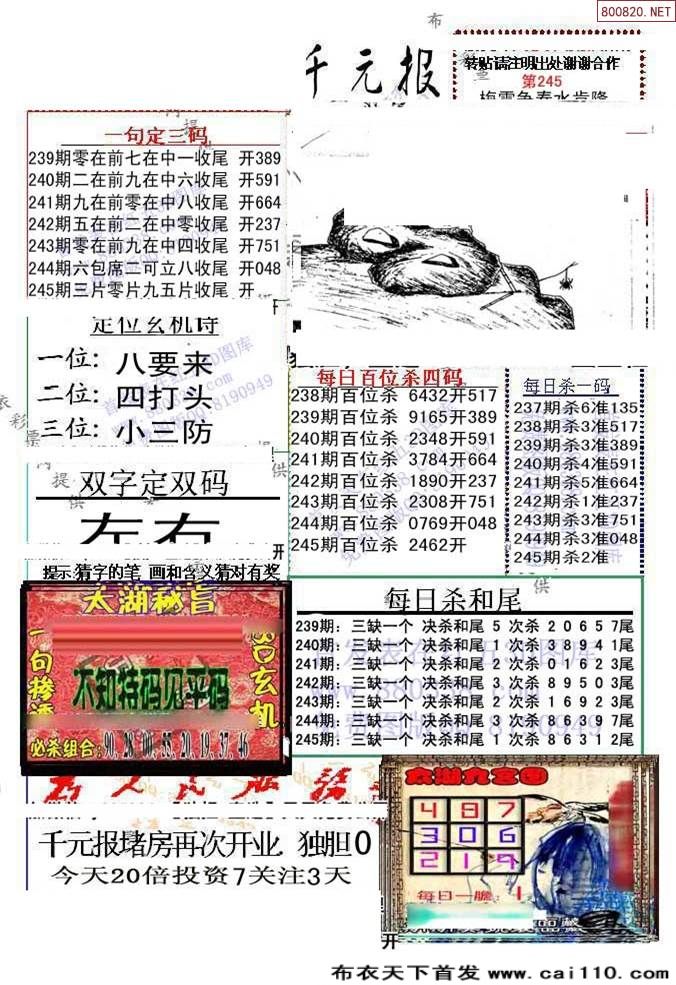 800820.NET
布
千元报
转贴请注明出处谢谢合作
第245
梅雪争春水肯降
一句定三码
239期零在前七在中一收尾 开389
240期二在前九在中六收尾 开591
241期九在前零在中八收尾 开664
242期五在前二在中零收尾 开237
243期零在前九在中四收尾 开751
244期六包席二可立八收尾 开048
245期三片零片九五片收尾 开
定位玄机诗
一位: 八要来
二位: 四打头
三位: 小三防
双字定双码
左右
开
提示:猜字的笔 画和含义猜对有奖
每日百位杀四码
238期百位杀 6432开517
239期百位杀 9165开389
240期百位杀 2348开591
241期百位杀 3784开664
242期百位杀 1890开237
243期百位杀 2308开751
244期百位杀 0769开048
245期百位杀 2462开
每日杀一码
237期杀6准135
238期杀3准517
239期杀3准389
240期杀4准591
241期杀5准664
242期杀1准237
243期杀3准751
244期杀3准048
245期杀2准
太湖秘旨
不知特码见平码
必杀组合:90.28.00.55.20.19.37.46
每日杀和尾
239期: 三缺一个 决杀和尾 5 次杀 2 0 6 5 7尾
240期: 三缺一个 决杀和尾 1 次杀 3 8 9 4 1尾
241期: 三缺一个 决杀和尾 2 次杀 0 1 6 2 3尾
242期: 三缺一个 决杀和尾 3 次杀 8 9 5 0 3尾
243期: 三缺一个 决杀和尾 2 次杀 1 6 9 2 3尾
244期: 三缺一个 决杀和尾 3 次杀 8 6 3 9 7尾
245期: 三缺一个 决杀和尾 1 次杀 8 6 3 1 2尾
千元报堵房再次开业 独胆0
今天20倍投资7关注3天
太湖九宫图
4 8 7
3 0 6
2 1 9
每日一胆: 1
开
布衣天下首发 www.cai110.com